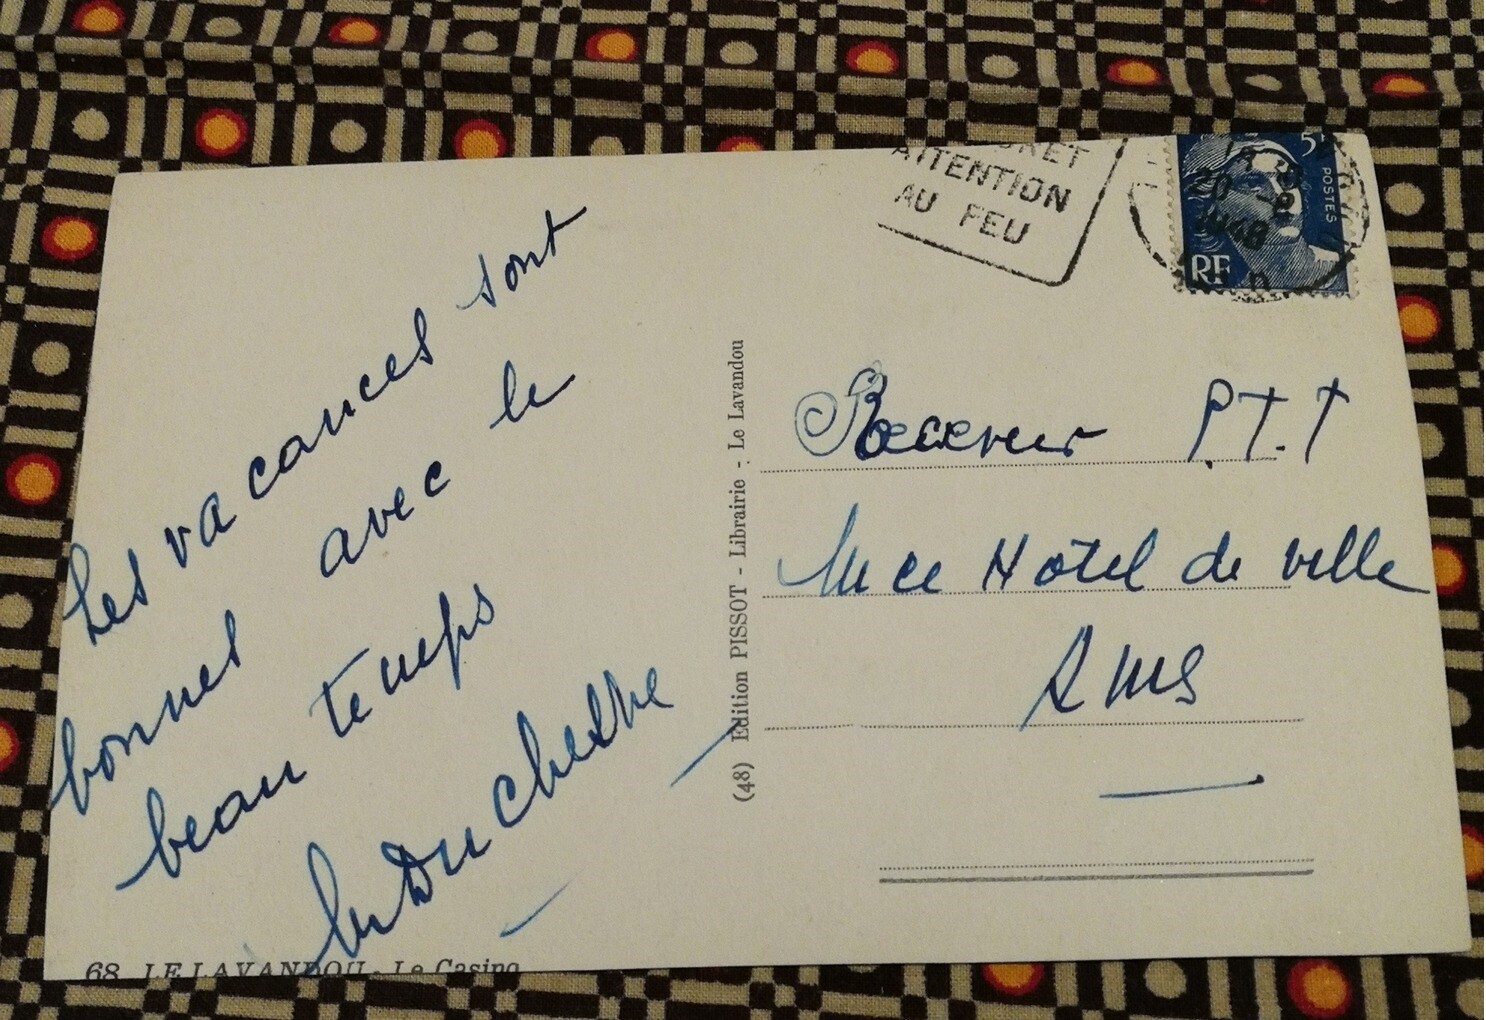 Les vacances sont
bonnes avec le
beau temps
Duchesne
68 LE LAVANDOU - Le Casino
(48) Edition PISSOT - Librairie - Le Lavandou
ATTENTION
AU FEU
5F
POSTES
20 -8
1948
RF
Receveur P.T.T
Hotel de ville